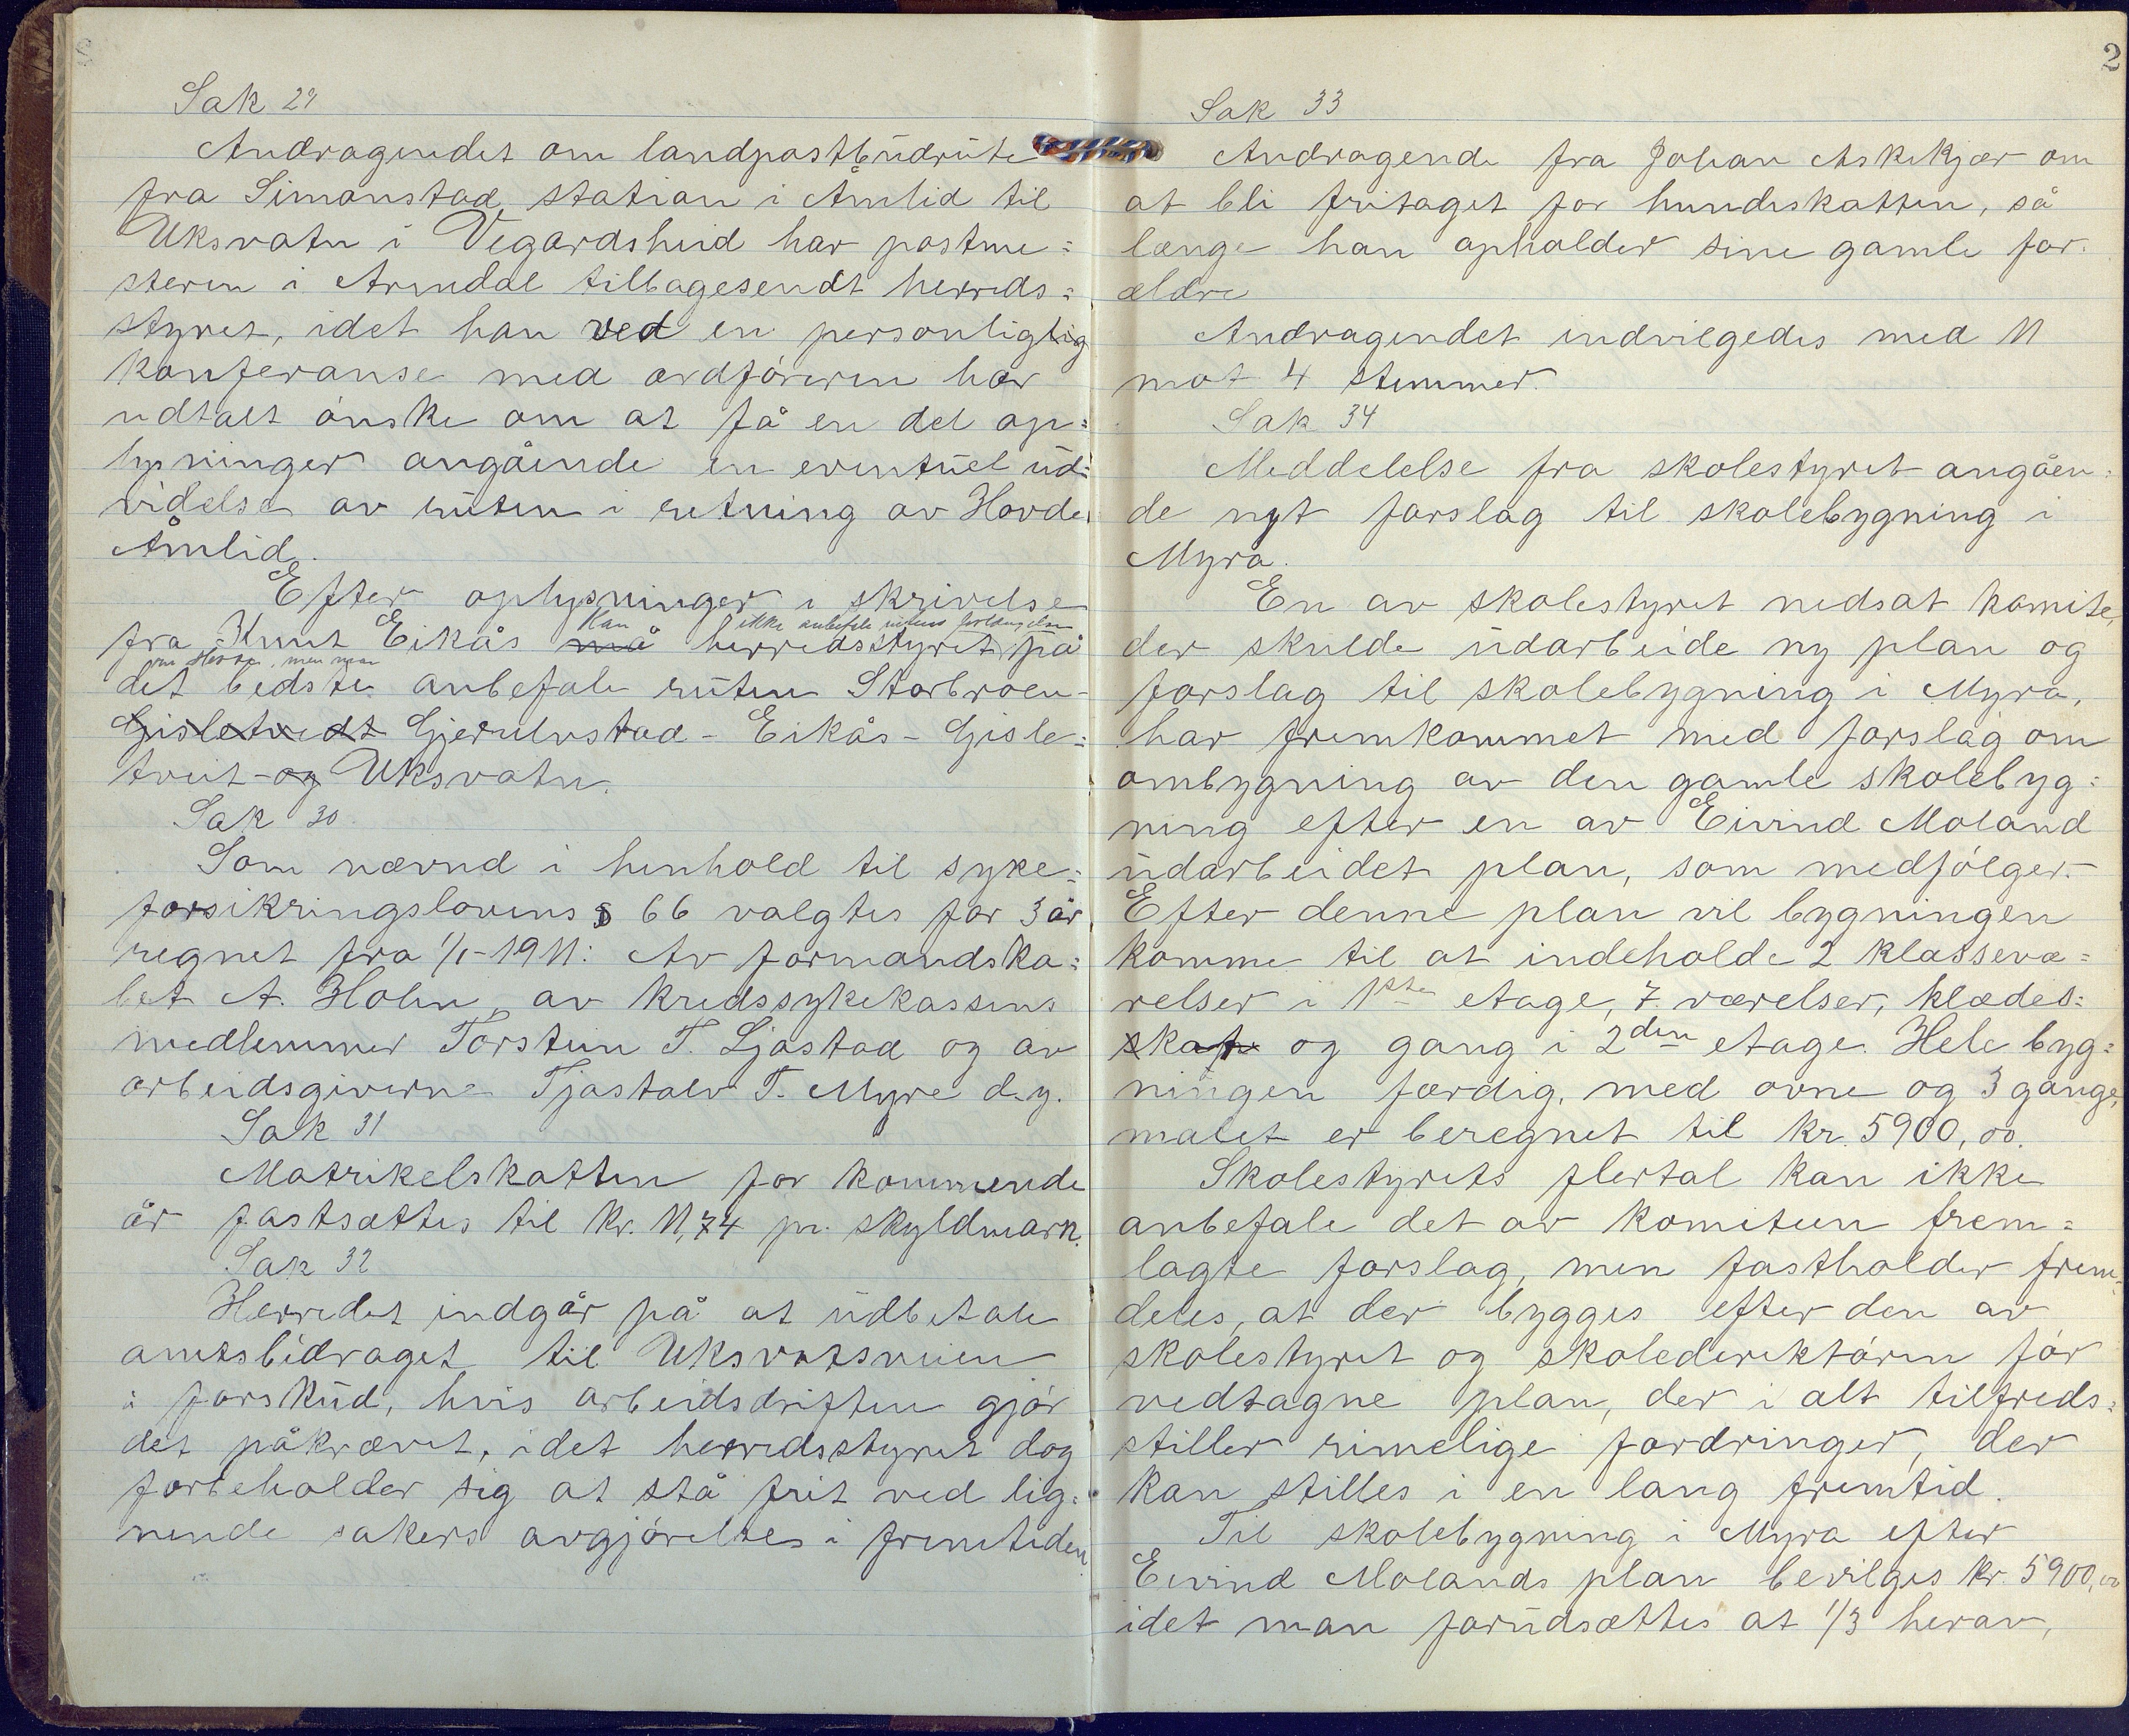 Sak 29
Andragendet om landpostbudrute
fra Simonstad station i Åmlid til
Uksvatn i Vegardsheid har postme=
steren i Arendal tilbagesendt herreds=
styret, idet han ved en personliglig
konferanse med ordføreren har
udtalt ønske om at få en del op=
lysninger angående en eventuel ud=
videlse av ruten i retning av Hovde
Åmlid.
Efter oplysninger i skrivelse
kan ikke anbefale rutens forlængelse
fra Knut Eikås må herredsstyret på
om Hovde, men man
det bedste anbefale ruten Storbroen-
Gisletvedt Gjerulvstad - Eikås - Gisle=
tveit - og Uksvatn.
Sak 30
Som nævnd i henhold til syke=
forsikringslovens § 66 valgtes for 3 år
regnet fra 1/1-1911: Av formandska=
bet A. Holen, av kredssykekassens
medlemmer Torstein T. Ljøstad og av
arbeidsgiverne Tjøstolv T. Myre d.y.
Sak 31
Matrikelskatten for kommende
år fastsættes til kr. 11,74 pr. skyldmark.
Sak 32
Herredet indgår på at udbetale
amtsbidraget til Uksvatsveien
i forskud, hvis arbeidsdriften gjør
det påkrævet, idet herredsstyret dog
forbeholder sig at stå frit ved lig=
nende sakers avgjørelses i fremtiden
2
Sak 33
Andragende fra Johan Askekjær om
at bli fritaget for hundeskatten, så
længe han opholder sine gamle for=
ældre
Andragendet indvilgedes med 11
mot 4 stemmer.
Sak 34
Meddelelse fra skolestyret angåen=
de nyt forslag til skolebygning i
Myra.
En av skolestyret nedsat komite,
der skulde udarbeide ny plan og
forslag til skolebygning i Myra,
har fremkommet med forslag om
ombygning av den gamle skolebyg=
ning efter en av Eivind Moland
udarbeidet plan, som medfølger.
Efter denne plan vil bygningen
komme til at indeholde 2 klassevæ=
relser i 1ste etage, 7 værelser, klædes=
skap og gang i 2den etage. Hele byg=
ningen færdig, med ovne og 3 gange,
malet er beregnet til kr. 5900,00.
Skolestyrets flertal kan ikke
anbefale det av komiteen frem=
lagte forslag, men fastholder frem=
deles, at der bygges efter den av
skolestyret og skolederiktøren før
vedtagne plan, der i alt tilfreds=
stiller rimelige fordringer, der
kan stilles i en lang fremtid.
Til skolebygning i Myra efter
Eivind Molands plan bevilges kr. 5900,00
idet man forudsættes at 1/3 herav,